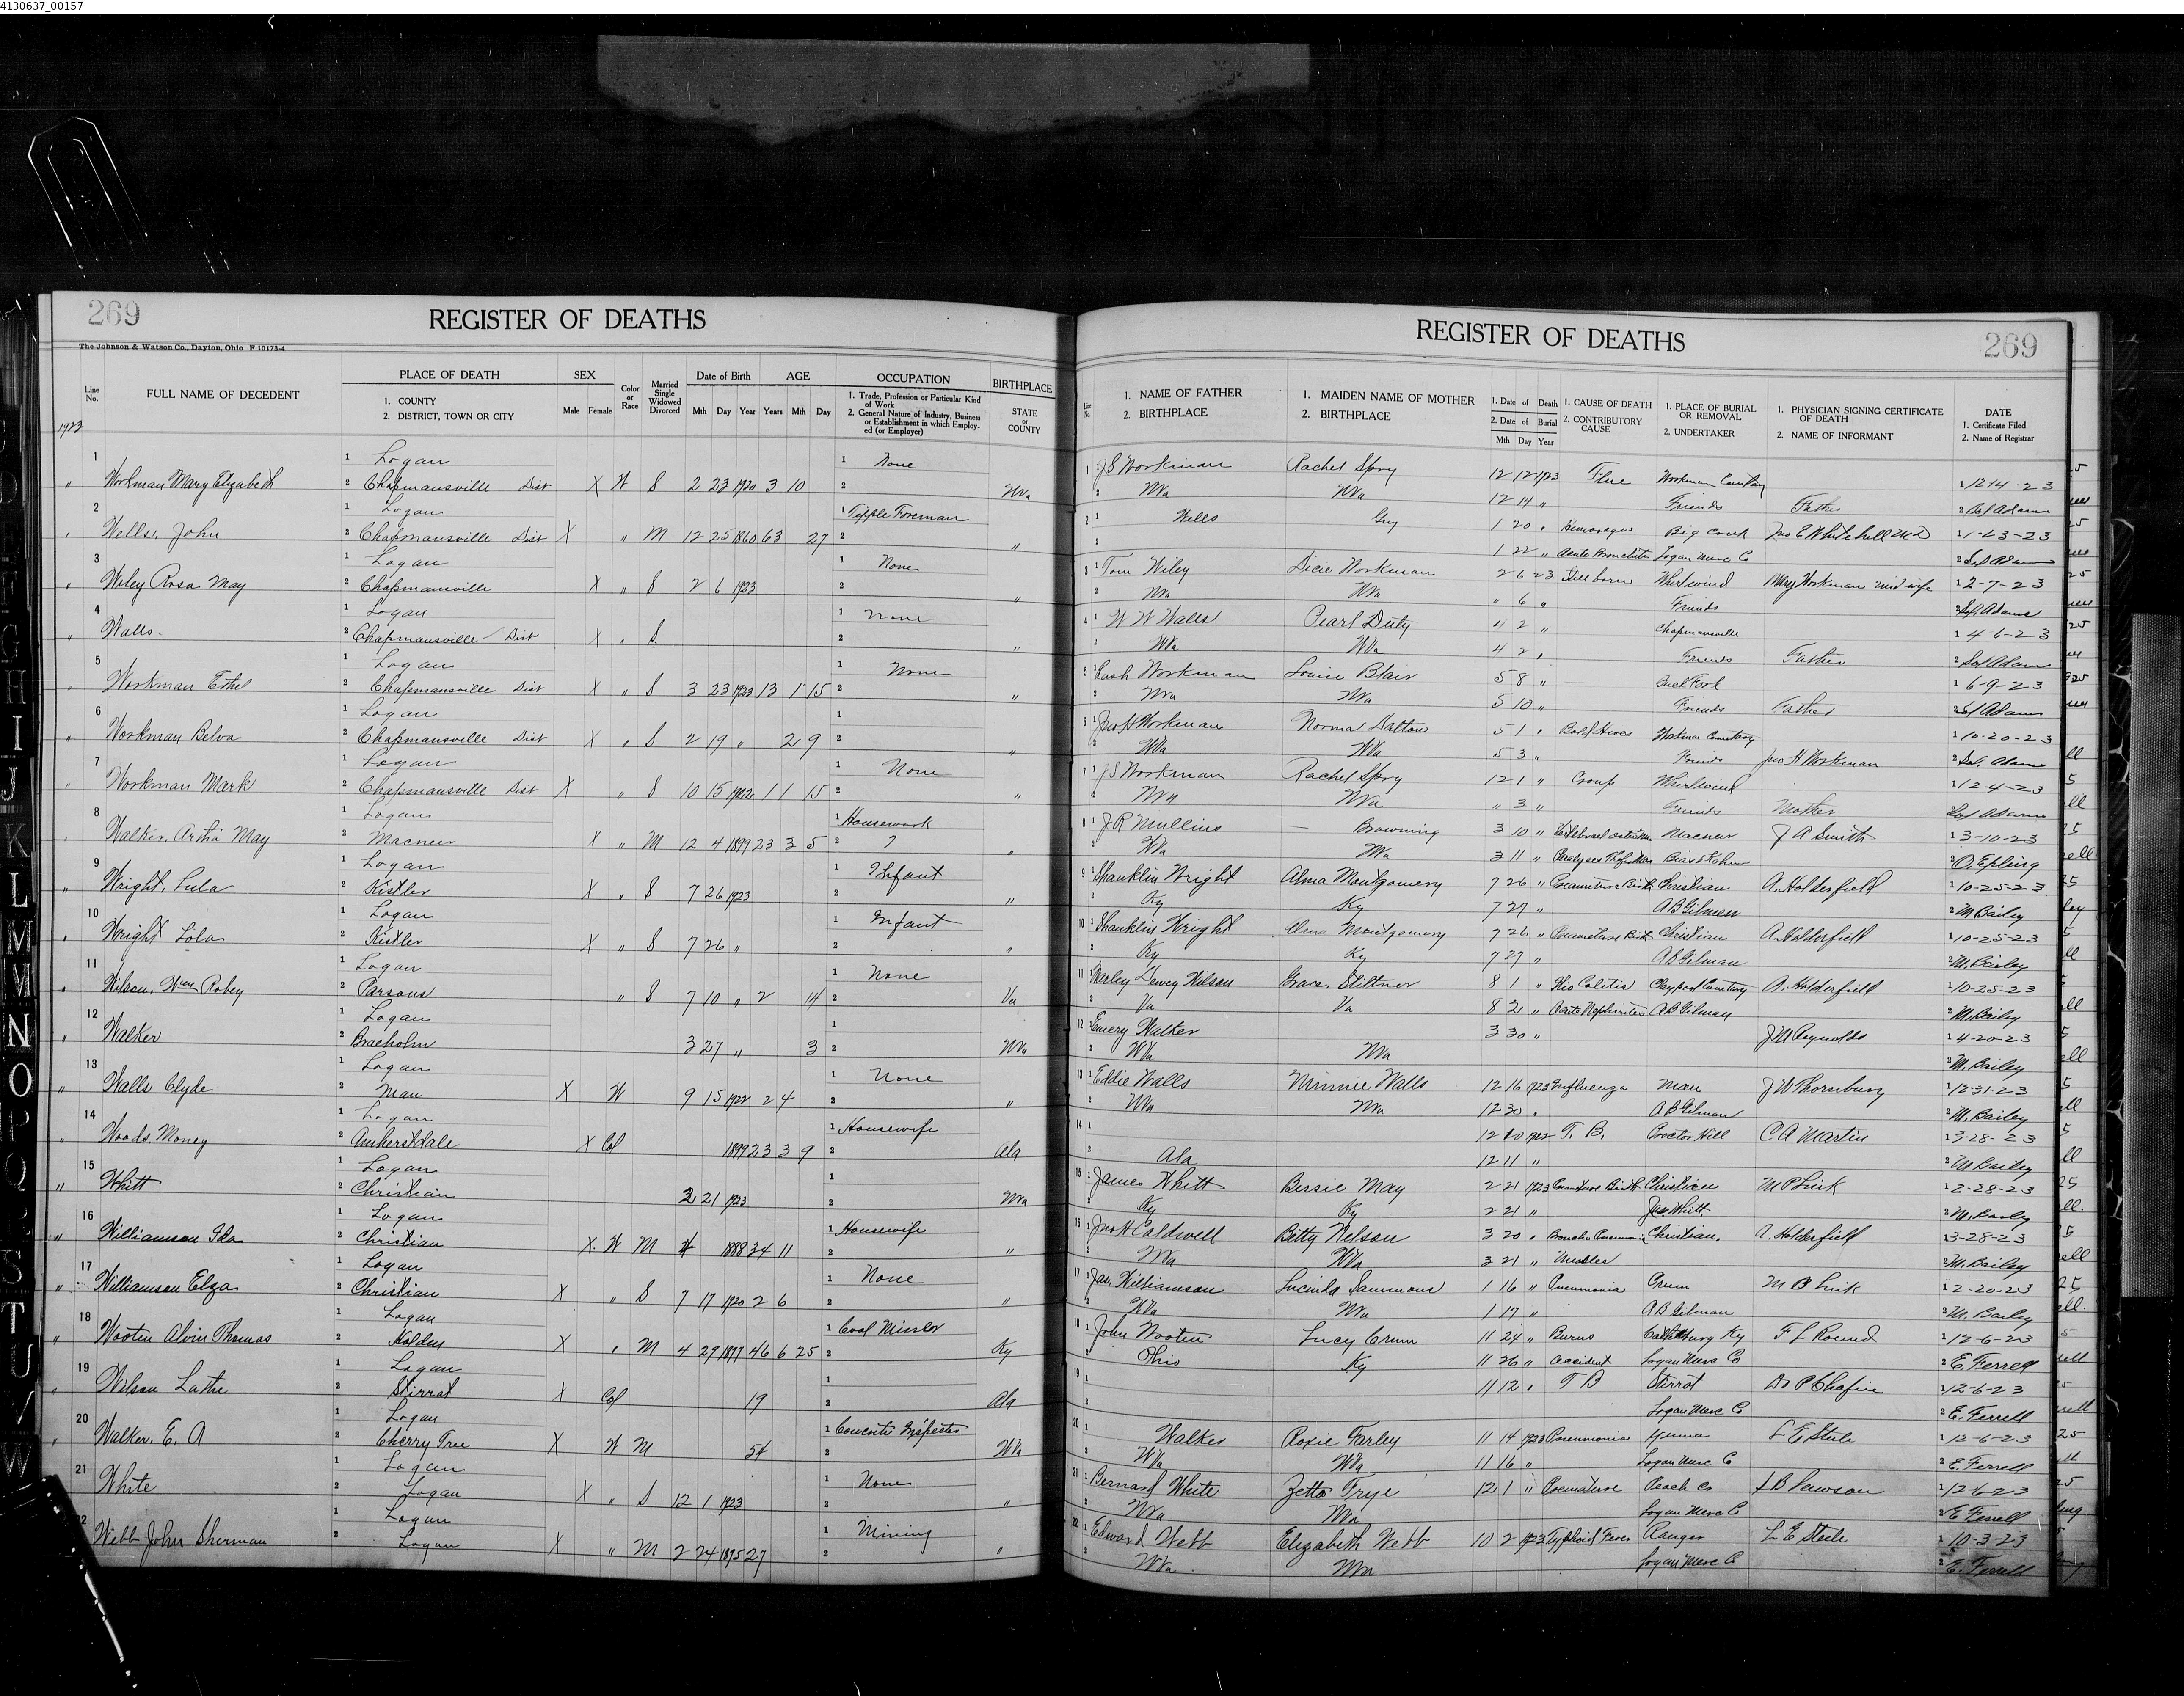 4130637_00157
269 REGISTER OF DEATHS
The Johnson & Watson Co., Dayton, Ohio F 10173-4
Line No. FULL NAME OF DECEDENT PLACE OF DEATH 1. COUNTY 2. DISTRICT, TOWN OR CITY SEX Male Female Color or Race Married Single Widowed Divorced Date of Birth Mth Day Year AGE Years Mth Day OCCUPATION 1. Trade, Profession or Particular Kind of Work 2. General Nature of Industry, Business or Establishment in which Employed (or Employer) BIRTHPLACE STATE or COUNTY
1923
1 Logan 1 None
" Workman Mary Elizabeth 2 Chapmansville Dist X W S 2 23 1920 3 10 2 WVa
2 1 Logan 1 Tipple Foreman
" Wells, John 2 Chapmansville Dist X " M 12 25 1860 63 27 2 "
3 1 Logan 1 None
" Wiley Rosa May 2 Chapmansville X " S 2 6 1923 2 "
4 1 Logan 1 None
" Walls 2 Chapmansville Dist X " S 2 "
5 1 Logan 1 None
" Workman Ethel 2 Chapmansville Dist X " S 3 23 1923 13 1 15 2 "
6 1 Logan 1
" Workman Belva 2 Chapmansville Dist X " S 2 19 " 2 9 2 "
7 1 Logan 1 None
" Workman Mark 2 Chapmansville Dist X " S 10 15 1922 1 1 15 2 "
8 1 Logan 1 Housework
" Walker, Artha May 2 Macneer X " M 12 4 1899 23 3 5 2 ? "
9 1 Logan 1 Infant
" Wright, Lula 2 Kistler X " S 7 26 1923 2 "
10 1 Logan 1 Infant
" Wright Lola 2 Kistler X " S 7 26 " 2 "
11 1 Logan 1 None
" Wilson, Wm Robey 2 Parsons " S 7 10 " 2 14 2 Va
12 1 Logan 1
" Walker 2 Braeholm 3 27 " 3 2 WVa
13 1 Logan 1 None
" Walls Clyde 2 Man X W 9 15 1922 2 4 2 "
14 1 Logan 1 Housewife
" Woods, Money 2 Amherstdale X Col 1899 23 3 9 2 Ala
15 1 Logan 1
" Whitt 2 Christian 2 21 1923 2 WVa
16 1 Logan 1 Housewife
" Williamson Ida 2 Christian X W M 1888 34 11 2 "
17 1 Logan 1 None
" Williamson Elza 2 Christian X " S 7 17 1920 2 6 2 "
18 1 Logan 1 Coal Miner
" Wooten Alvin Thomas 2 Holden X " M 4 29 1877 46 6 25 2 Ky
19 1 Logan 1
" Wilson Lathe 2 Stirrat X Col 19 2 Ala
20 1 Logan 1 Concrete Inspector
" Walker, E. A 2 Cherry Tree X W M 54 2 WVa
21 1 Logan 1 None
White 2 Logan X " S 12 1 1923 2 "
22 1 Logan 1 Mining
Webb John Sherman 2 Logan X " M 2 24 1895 27 2 "
REGISTER OF DEATHS 269
Line No. 1. NAME OF FATHER 2. BIRTHPLACE 1. MAIDEN NAME OF MOTHER 2. BIRTHPLACE 1. Date of Death 2. Date of Burial Mth Day Year 1. CAUSE OF DEATH 2. CONTRIBUTORY CAUSE 1. PLACE OF BURIAL OR REMOVAL 2. UNDERTAKER 1. PHYSICIAN SIGNING CERTIFICATE OF DEATH 2. NAME OF INFORMANT DATE 1. Certificate Filed 2. Name of Registrar
1 1 J S Workman Rachel Spry 12 12 1923 Flue Workman Cemetery 1 12 14 - 23
2 WVa WVa 12 14 " Friends Father 2 Sol Adams
2 1 Wells Guy 1 20 " Hemorages Big Creek Jno E Whitehill MD 1 1-23-23
2 1 22 " Acute Bronchitis Logan Merc Co 2 Sol Adams
3 1 Tom Wiley Dicie Workman 2 6 23 Stillborn Whirlwind Mary Workman mid wife 1 2-7-23
2 WVa WVa " 6 " Friends 2 Sol Adams
4 1 W W Walls Pearl Duty 4 2 " Chapmansville 1 4 6-23
2 WVa WVa 4 2 " Friends Father 2 Sol Adams
5 1 Rush Workman Louise Blair 5 8 " Buck Fork 1 6-9-23
2 WVa WVa 5 10 " Friends Father 2 Sol Adams
6 1 Jno H Workman Norma Dalton 5 1 " Bold Hives Workman Cemetery 1 10-20-23
2 WVa WVa 5 3 " Friends Jno H Workman 2 Sol Adams
7 1 J S Workman Rachel Spry 12 1 " Croup Whirlwind 1 12-4-23
2 WVa WVa " 3 " Friends Mother 2 Sol Adams
8 1 J R Mullins — Browning 3 10 " Macneer J A Smith 1 3-10-23
2 WVa WVa 3 11 " 2 O. Epling
9 1 Shanklin Wright Alma Montgomery 7 26 " Premature Birth Christian A. Holderfield 1 10-25-23
2 Ky Ky 7 27 " A B Gilman 2 M Bailey
10 1 Shanklin Wright Alma Montgomery 7 26 " Premature Birth Christian A. Holderfield 1 10-25-23
2 Ky Ky 7 27 " A B Gilman 2 M. Bailey
11 1 Dewey Wilson Grace Stiltner 8 1 " Ileo Colitis Claypool Cemetery A. Holderfield 1 10-25-23
2 Va Va 8 2 " Acute Nephritis A B Gilman 2 M. Bailey
12 1 Emery Walker 3 30 " J M Reynolds 1 4-20-23
2 WVa WVa 2 M. Bailey
13 1 Eddie Walls Minnie Walls 12 16 1923 Influenza Man J W Thornburg 1 12-31-23
2 WVa WVa 12 30 " A B Gilman 2 M. Bailey
14 1 12 10 1922 T. B. Proctor Hill C A Martin 1 3-28-23
2 Ala 12 11 " 2 M Bailey
15 1 James Whitt Bessie May 2 21 1923 Premature Birth Christian M P Link 1 2-28-23
2 Ky Ky 2 21 " Jas Whitt 2 M. Bailey
16 1 Jno H Caldwell Betty Nelson 3 20 " Broncho Pneumonia Christian A. Holderfield 1 3-28-23
2 WVa WVa 3 21 " Measles 2 M. Bailey
17 1 Jas. Williamson Lucinda Sammons 1 16 " Pneumonia Crum M B Link 1 2-20-23
2 WVa WVa 1 17 " A B Gilman 2 M. Bailey
18 1 John Wooten Lucy Crum 11 24 " Burns Catlettsburg Ky F L Round 1 12-6-23
2 Ohio Ky 11 26 " Accident Logan Merc Co 2 E. Ferrell
19 1 11 12 " T B Stirrat Dr P Chafin 1 12-6-23
2 Logan Merc Co 2 E. Ferrell
20 1 Walker Roxie Farley 11 14 1923 Pneumonia Yuma L E Steele 1 12-6-23
2 WVa WVa 11 16 " Logan Merc Co 2 E. Ferrell
21 1 Bernard White Zetta Frye 12 1 " Premature Peach Co S B Lawson 1 12-6-23
2 WVa WVa Logan Merc Co 2 E Ferrell
22 1 Edward Webb Elizabeth Webb 10 2 1923 Typhoid Fever Ranger L E Steele 1 10-3-23
2 WVa WVa Logan Merc Co 2 E. Ferrell